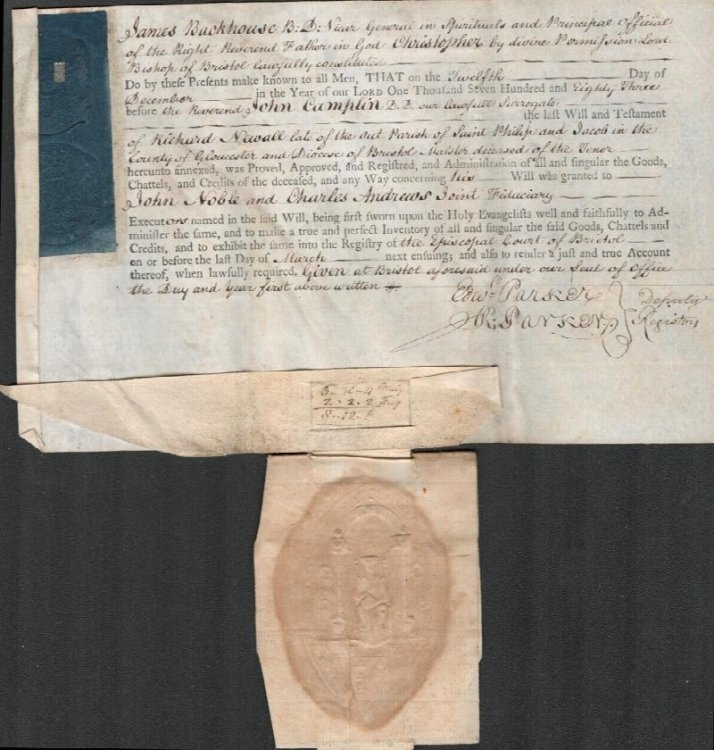 James Backhouse B: D: Vicar General in Spirituals and Principal Official
of the Right Reverend Father in God Christopher by divine Permission Lord
Bishop of Bristol lawfully constituted
Do by these Presents make known to all Men, THAT on the Twelfth Day of
December in the Year of our LORD One Thousand Seven Hundred and Eighty Three
before the Reverend John Camplin D.D. our lawfull Surrogate
the last Will and Testament
of Richard Newall late of the out Parish of Saint Philip and Jacob in the
County of Gloucester and Diocese of Bristol Malster deceased of the Tenor
hereunto annexed, was Proved, Approved, and Registred, and Administration of all and singular the Goods,
Chattels, and Credits of the deceased, and any Way concerning his Will was granted to
John Noble and Charles Andrews Joint Fiduciary
Executors named in the said Will, being first sworn upon the Holy Evangelists well and faithfully to Ad-
minister the same, and to make a true and perfect Inventory of all and singular the said Goods, Chattels and
Credits, and to exhibit the same into the Registry of the Episcopal Court of Bristol
on or before the last Day of March next ensuing; and also to render a just and true Account
thereof, when lawfully required. Given at Bristol aforesaid under our Seal of Office
the Day and Year first above written
Edwd. Parker
R: Parker
Deputy
Registers